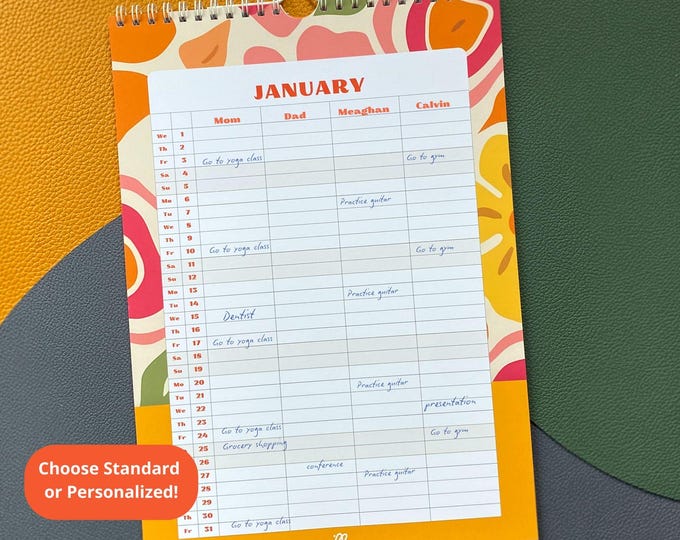 JANUARY
Mom Dad Meaghan Calvin
We 1
Th 2
Fr 3 Go to yoga class Go to gym
Sa 4
Su 5
Mo 6 Practice guitar
Tu 7
We 8
Th 9
Fr 10 Go to yoga class Go to gym
Sa 11
Su 12
Mo 13 Practice guitar
Tu 14
We 15 Dentist
Th 16
Fr 17 Go to yoga class
Sa 18
Su 19
Mo 20 Practice guitar
Tu 21
We 22 presentation
Th 23
Fr 24 Go to yoga class Go to gym
25 Grocery shopping
26 conference
27 Practice guitar
28
29
Th 30
Fr 31 Go to yoga class
Choose Standard
or Personalized!